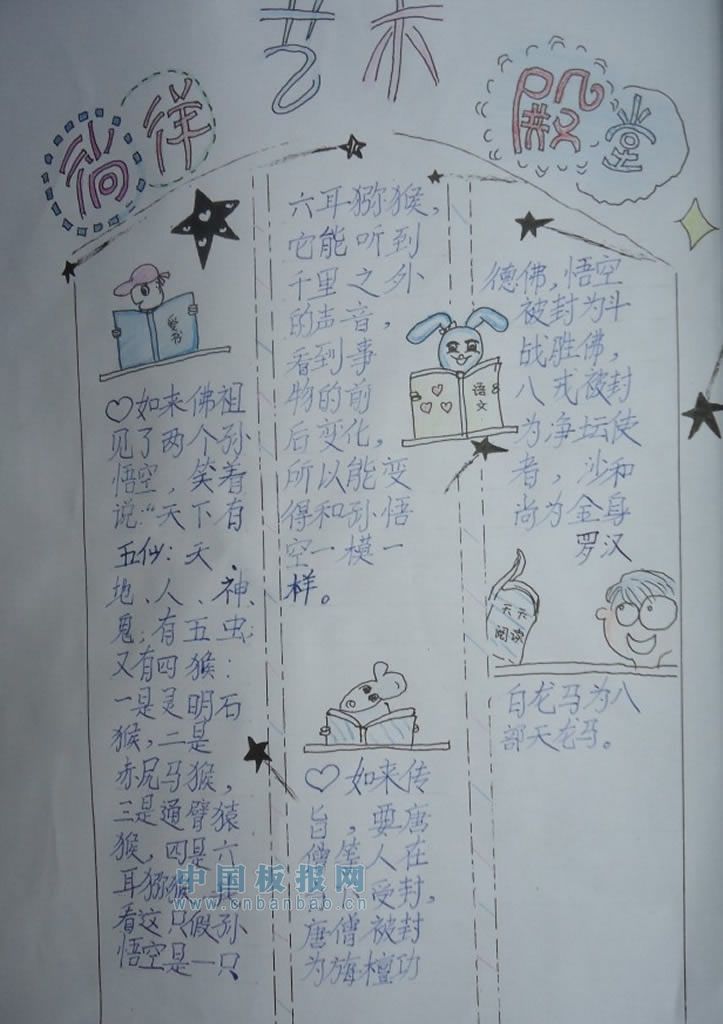 艺术
徜徉
殿堂
爱书
♡如来佛祖
见了两个孙
悟空，笑着
说:“天下有
五仙：天、
地、人、神、
鬼；有五虫；
又有四猴：
一是灵明石
猴，二是
赤尻马猴，
三是通臂猿
猴，四是六
耳猕猴。我
看这只假孙
悟空是一只
六耳猕猴，
它能听到
千里之外
的声音，
看到事
物的前
后变化，
所以能变
得和孙悟
空一模一
样。
♡如来传
旨，要唐
僧等人在
受封，
唐僧被封
为旃檀功
语文
德佛，悟空
被封为斗
战胜佛，
八戒被封
为净坛使
者，沙和
尚为金身
罗汉
天天
阅读
白龙马为八
部天龙马。
中国板报网
www.cnbanbao.cn